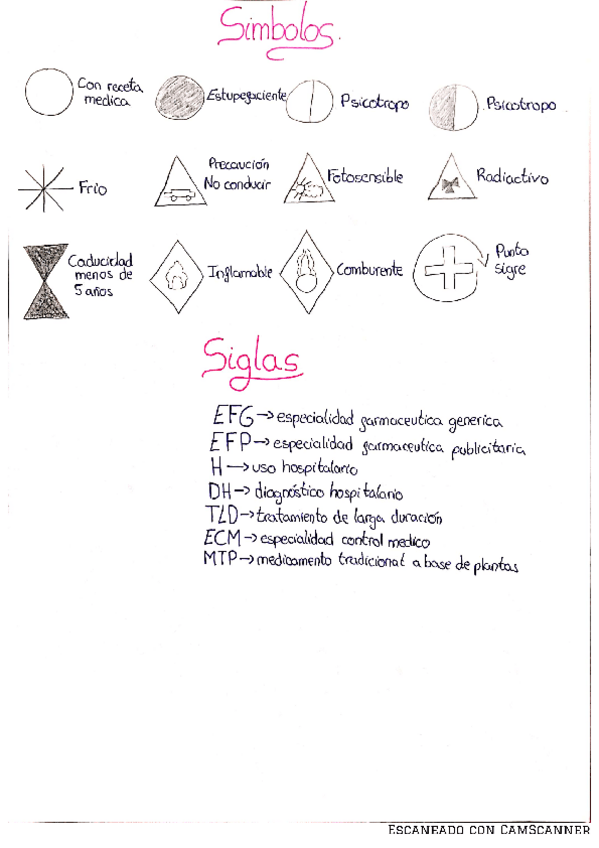 Simbolos.
Con receta
medica
Estupefaciente
Psicotropo
Psicotropo
Frio
Precaución
No conducir
Fotosensible
Radiactivo
Caducidad
menos de
5 años
Inflamable
Comburente
Punto
sigre
Siglas
EFG → especialidad farmaceutica generica
EFP → especialidad farmaceutica publicitaria
H → uso hospitalario
DH → diagnóstico hospitalario
TLD → tratamiento de larga duración
ECM → especialidad control medico
MTP → medicamento tradicional a base de plantas
ESCANEADO CON CAMSCANNER